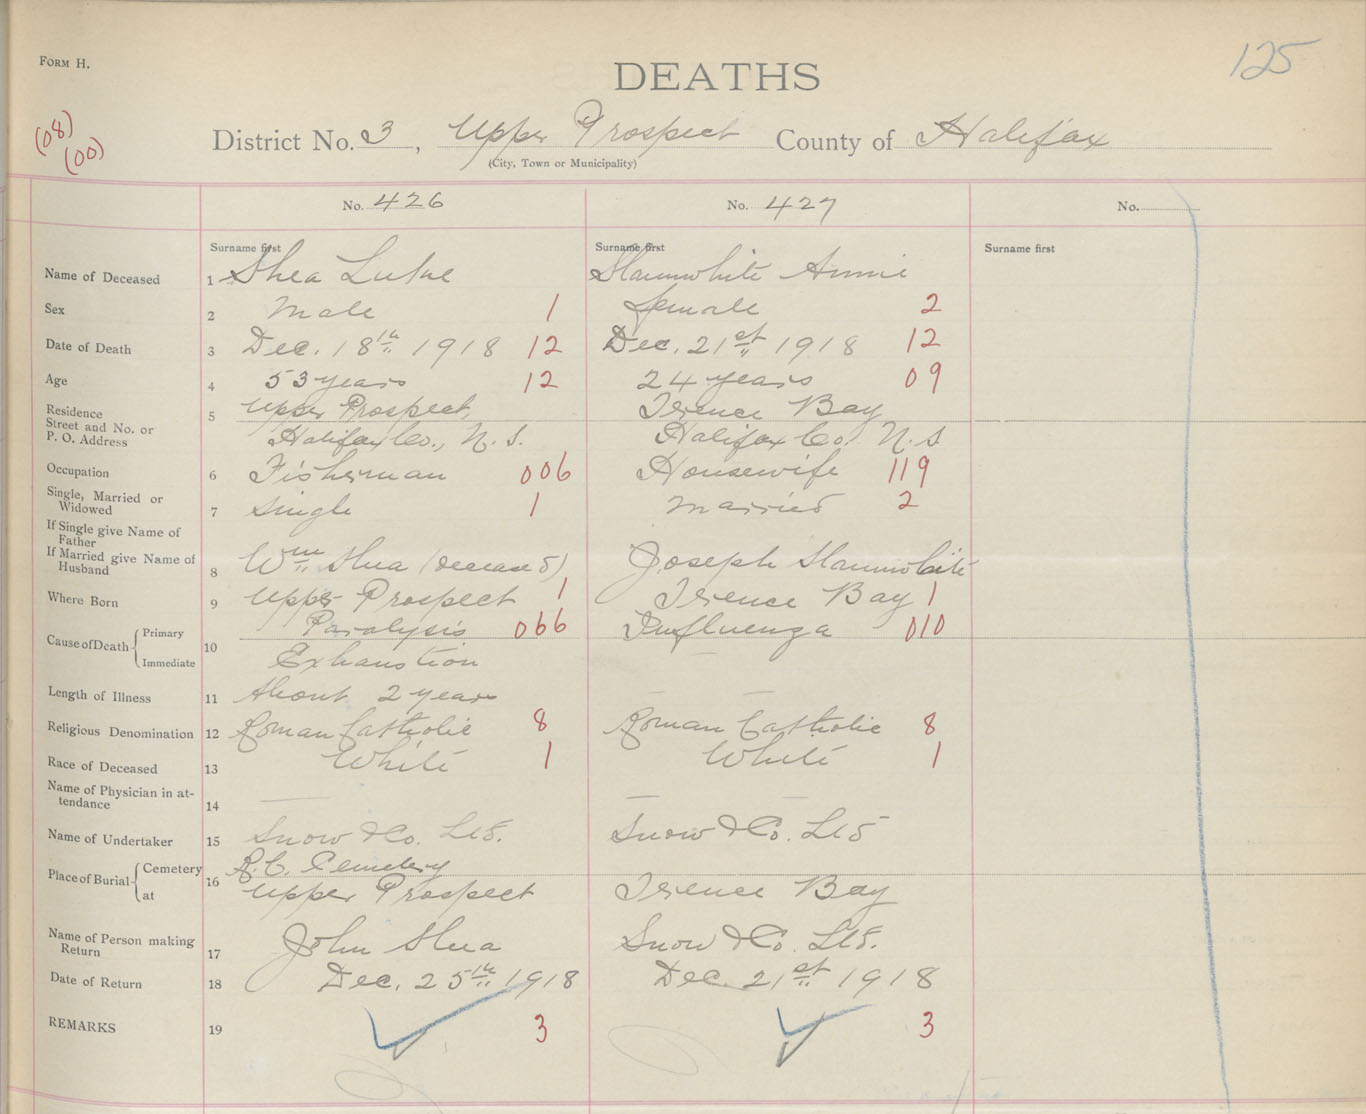 125
FORM H.
DEATHS
(08)
(00)
District No. 3, Upper Prospect County of Halifax
(City, Town or Municipality)
No. 426 No. 427 No.
Surname first Surname first Surname first
Name of Deceased 1 Shea Luke Slaunwhite Annie
Sex 2 Male 1 female 2
Date of Death 3 Dec. 18th 1918 12 Dec. 21st 1918 12
Age 4 53 years 12 24 years 09
Residence Upper Prospect, Terence Bay
Street and No. or 5
P. O. Address Halifax Co., N. S. Halifax Co. N. S
Occupation 6 Fisherman 006 Housewife 119
Single, Married or
Widowed 7 Single 1 Married 2
If Single give Name of
Father
If Married give Name of
Husband 8 Wm Shea (deceased) Joseph Slaunwhite
Where Born 9 Upper Prospect 1 Terence Bay 1
Cause of Death Primary 10 Paralysis 066 Influenza 010
Immediate Exhaustion —
Length of Illness 11 About 2 years — —
Religious Denomination 12 Roman Catholic 8 Roman Catholic 8
Race of Deceased 13 White 1 White 1
Name of Physician in at-
tendance 14 — — —
Name of Undertaker 15 Snow & Co. Ltd. Snow & Co. Ltd
Place of Burial Cemetery 16 R.C. Cemetery
at Upper Prospect Terence Bay
Name of Person making
Return 17 John Shea Snow & Co. Ltd.
Date of Return 18 Dec. 25th 1918 Dec. 21st 1918
REMARKS 19 3 3